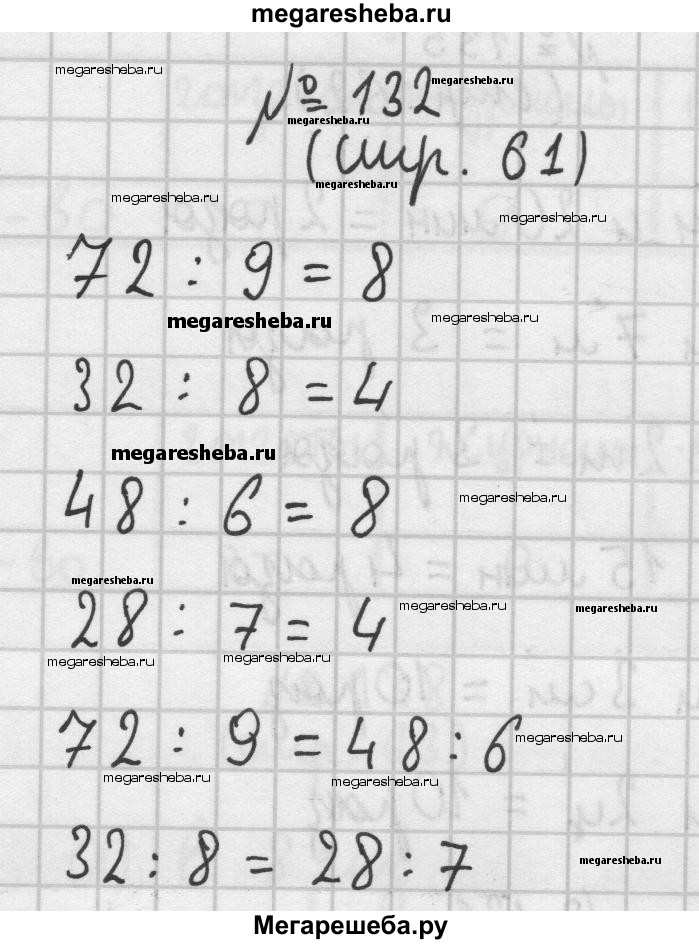 megaresheba.ru
megaresheba.ru
№ 132
megaresheba.ru
megaresheba.ru
(стр. 61)
megaresheba.ru
megaresheba.ru
megaresheba.ru
72 : 9 = 8
megaresheba.ru
megaresheba.ru
32 : 8 = 4
megaresheba.ru
48 : 6 = 8
megaresheba.ru
megaresheba.ru
28 : 7 = 4
megaresheba.ru
megaresheba.ru
megaresheba.ru
megaresheba.ru
72 : 9 = 48 : 6
megaresheba.ru
megaresheba.ru
megaresheba.ru
32 : 8 = 28 : 7
megaresheba.ru
Мегарешеба.ру